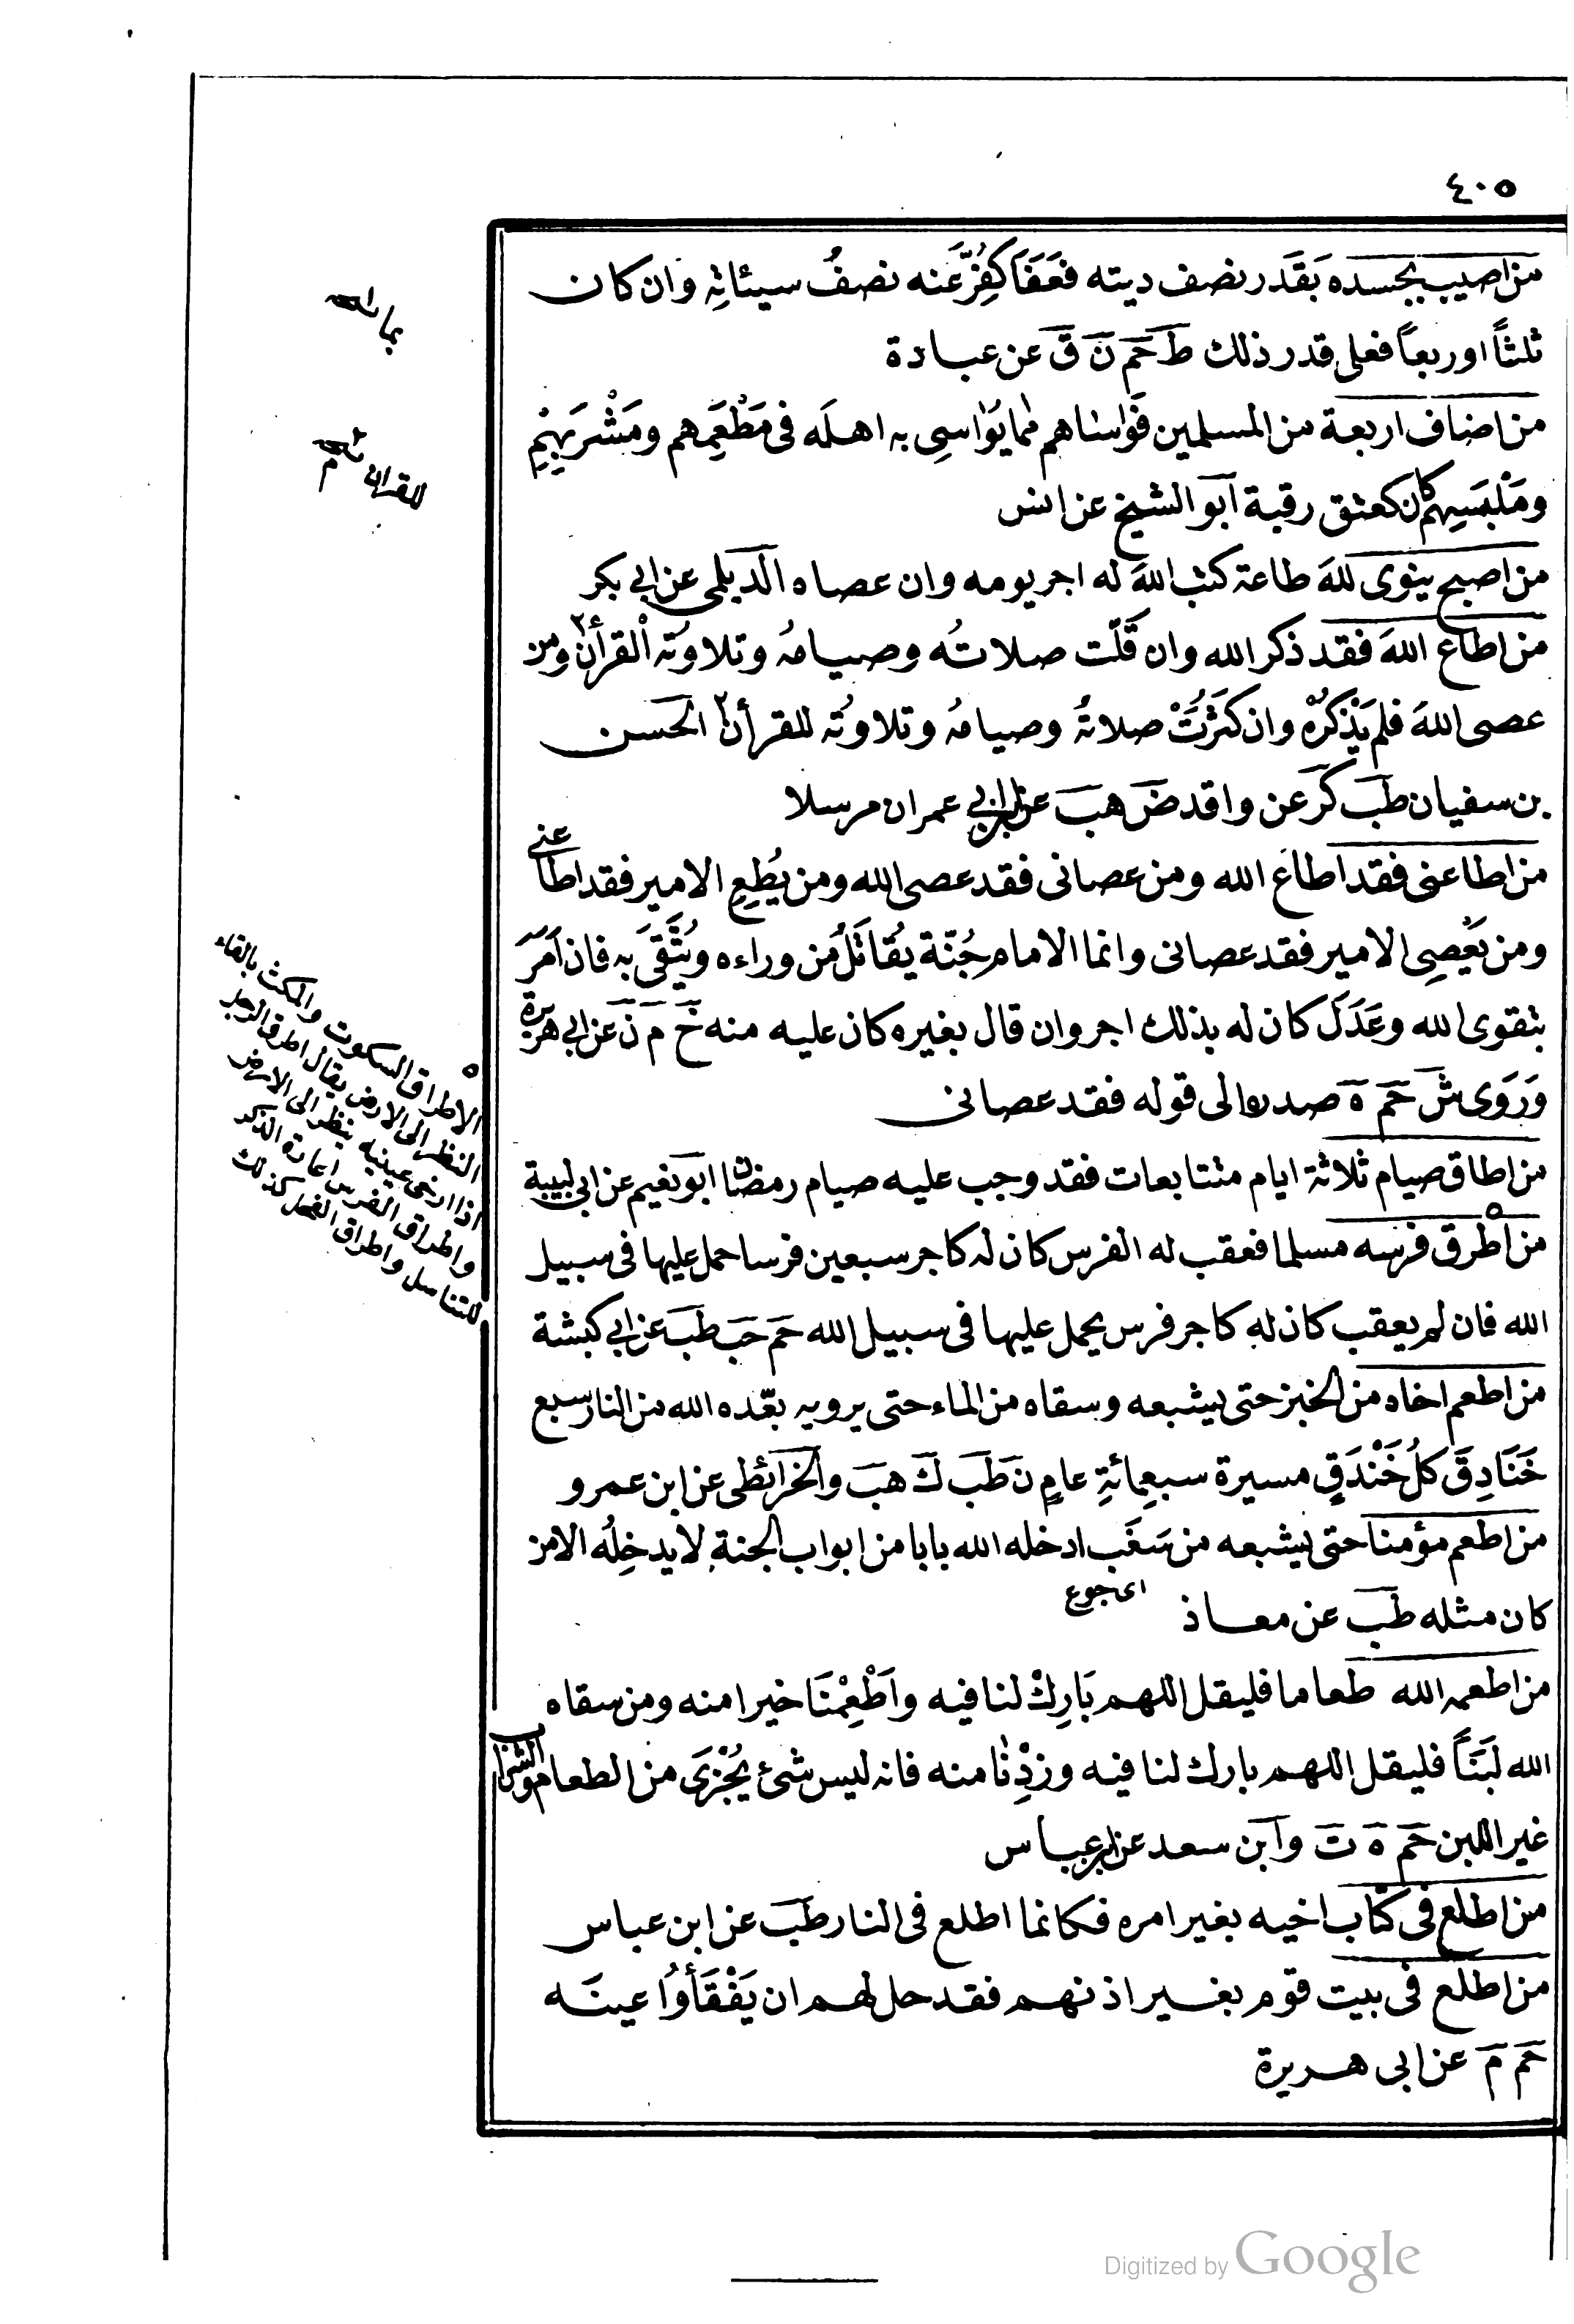 ٤٠٥
من اصيب بجسده بَقَدَر نصف ديته فعَفَا كُفِّرَ عَنه نصفُ سيئاتِهِ وان كان
ثلثاً اوربعاً فعلى قدر ذلك ط حم ن ق عن عبادة
من اضاف اربعة من المسلمين فَوَاساهم مما يُوَاسِى به اهلَه فى مَطْعَمِهم ومَشْرَبِهِمْ
ومَلْبَسِهِم كان كعتق رقبة ابو الشيخ عن انس
من اصبح ينوى للهَ طاعة كتب اللهَ له اجر يومه وان عصاه الديلمى عن ابى بكر
من اطاع اللهَ فقد ذكر الله وان قَلَّت صلاتُه وصيامُه وتلاوتُه القرأن ومن
عصى اللهَ فلم يَذْكُرْه وان كَثُرَتْ صلاتهُ وصيامُه وتلاوتُه للقرأن الحسن
بن سفيان طب كر عن واقد ض هب عن ابى عمران مرسلا
من اطاعنى فقد اطاع الله ومن عصانى فقد عصى الله ومن يُطِعِ الامير فقد اطاعنى
ومن يَعْصِى الامير فقد عصانى وانما الامام جُنّة يُقَاتَلُ من وراءه ويُتَّقَى به فان اَمَرَ
بتقوى الله وعَدَلَ كان له بذلك اجر وان قال بغيره كان عليه منه خ م ن عن ابى هريرة
وَرَوَى ش حم ه صدره الى قوله فقد عصانى
من اطاق صيام ثلاثة ايام متتابعات فقد وجب عليه صيام رمضان ابو نعيم عن ابى لبيبة
من اطْرق فرسَه مسلما فعقب له الفرس كان له كاجر سبعين فرسا حمل عليها فى سبيل
الله فان لم يعقب كان له كاجر فرس يحمل عليها فى سبيل الله حم حب طب عن ابى كبشة
من اطعم اخاه من الخبز حتى يشبعه وسقاه من الماء حتى يرويه بعّده الله من النار سبع
خَنَادِقَ كلُ خَنْدَقٍ مسيرة سبعِمائةِ عامٍ ن طب ك هب والخرائطى عن ابن عمرو
من اطعم مؤمنا حتى يشبعه من سَغَب ادخله الله بابا من ابواب الجنة لا يدخِلُه الا من
اى جوع
كان مثله طب عن معاذ
من اطعمه الله طعاما فليقل اللهم بَارِكْ لنا فيه واَطْعِمْنَا خيرا منه ومن سقاه
الله لَبَنًا فليقل اللهم بارك لنا فيه وزِدْنا منه فانه ليس شئ يُجْزِى من الطعام والشراب
غير اللبن حم ه ت وابن سعد عن ابن عباس
من اطلع فى كتاب اخيه بغير امره فكانما اطلع فى النار طب عن ابن عباس
من اطلع فى بيت قوم بغير اذنهم فقد حل لهم ان يَفْقَأُوا عينَه
حم م عن ابى هريرة
للقران
الاطراق السكوت والمكث بالقاء
النظر الى الارض يقال اطرق الرجل
اذا ارخى عينيه ينظر الى الارض
واطراق الفرس اعارة الذكر
للتناسل واطراق الفحل كذلك
Digitized by Google